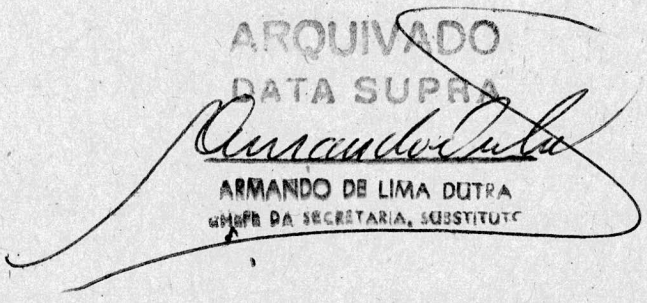 ARQUIVADO
DATA SUPRA
Armando Dutra
ARMANDO DE LIMA DUTRA
CHEFE DA SECRETARIA, SUBSTITUTO